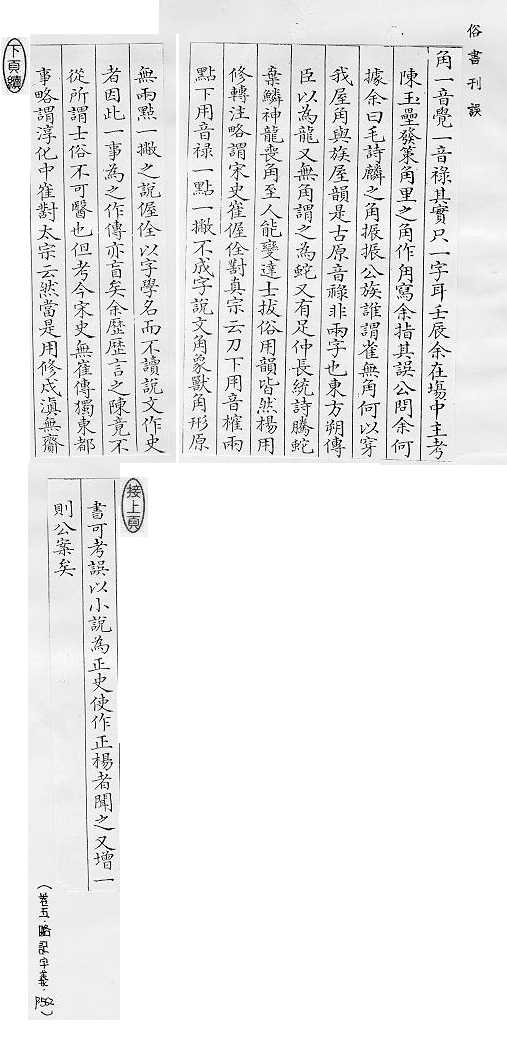 俗書刊誤
角一音覺一音祿其實只一字耳壬辰余在塲中主考
陳玉壘發策角里之角作甪寫余指其誤公問余何
據余曰毛詩麟之角振振公族誰謂雀無角何以穿
我屋角與族屋韻是古原音祿非兩字也東方朔傳
臣以為龍又無角謂之為蛇又有足仲長統詩騰蛇
棄鱗神龍喪角至人能變達士拔俗用韻皆然楊用
修轉注略謂宋史崔偓佺對真宗云刀下用音榷兩
點下用音祿一點一撇不成字說文角象獸角形原
無兩點一撇之說偓佺以字學名而不讀說文作史
者因此一事為之作傳亦盲矣余歷歷言之陳竟不
從所謂士俗不可醫也但考今宋史無崔傳獨東都
事略謂淳化中崔對太宗云然當是用修戍滇無齎
下頁續
接上頁
書可考誤以小說為正史使作正楊者聞之又增一
則公案矣
(卷五.略記字義.P562)